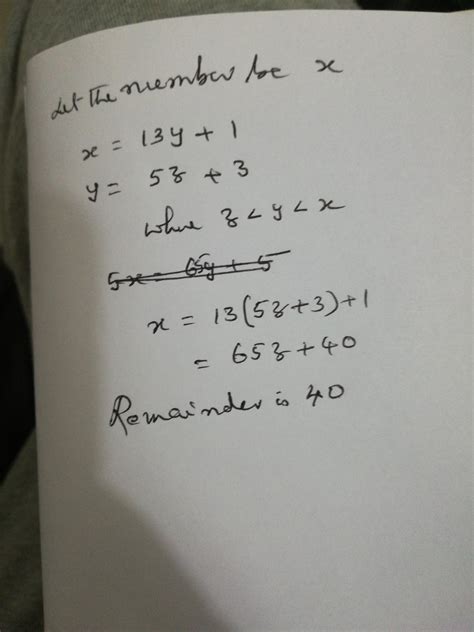 Let the number be x
x = 13y + 1
y = 5z + 3
where z < y < x
5x = 65y + 5
x = 13(5z+3)+1
= 65z+40
Remainder is 40